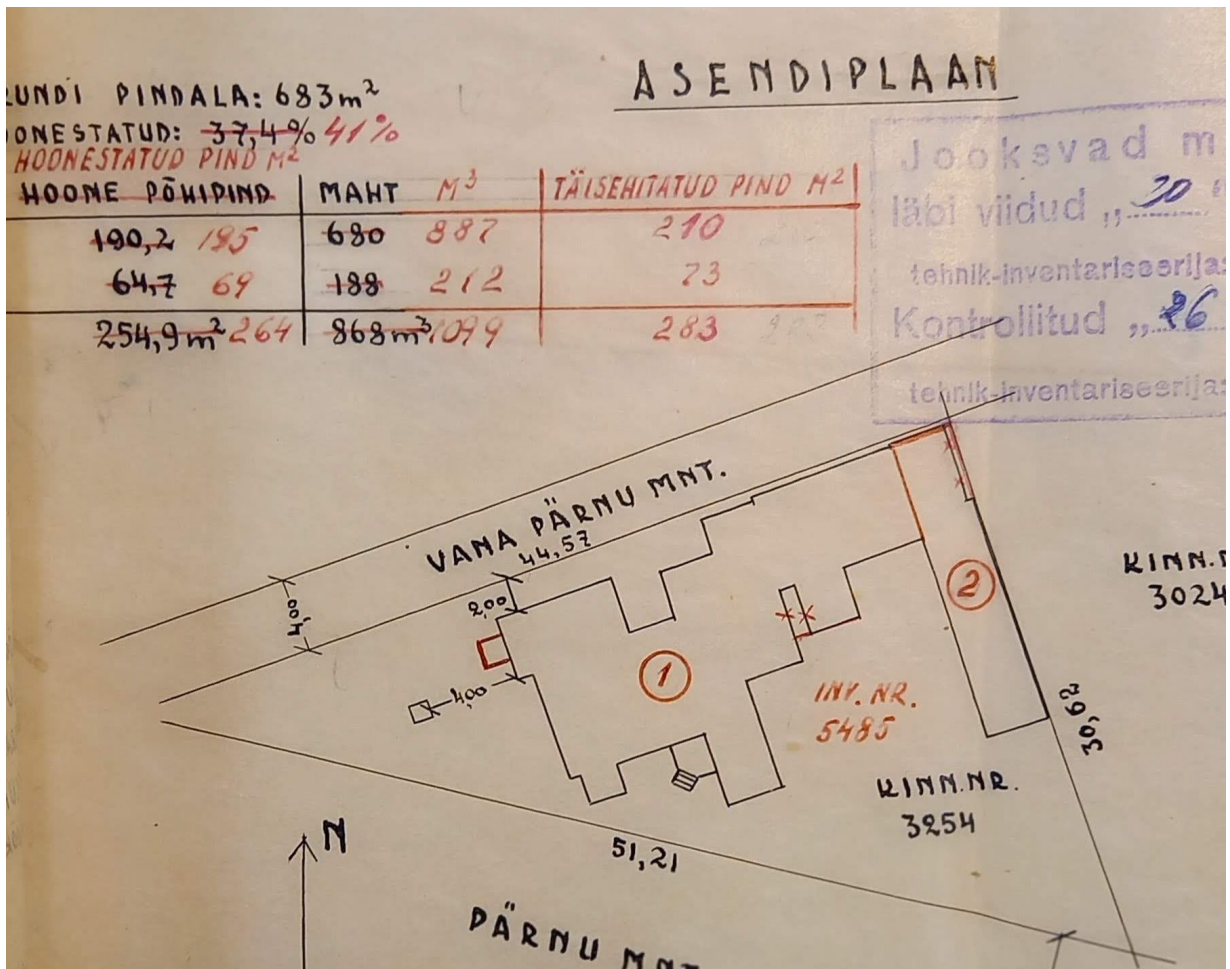 ASENDIPLAAN
UNDI PINDALA: 683m²
OONESTATUD: 37,4% 41%
HOONESTATUD PIND M²
HOONE PÕHIPIND MAHT M³ TÄISEHITATUD PIND M²
190,2 195 680 887 210
64,7 69 188 212 73
254,9m² 264 868m³ 1099 283
Jooksvad m
läbi viidud „ 30 "
tehnik-inventariseerija:
Kontrollitud „ 26
tehnik-inventariseerija:
VANA PÄRNU MNT.
44,57
4,00
2,00
4,00
1
2
INV. NR.
5485
KINN.N
3024
30,62
KINN.NR.
3254
51,21
N
PÄRNU MNT.